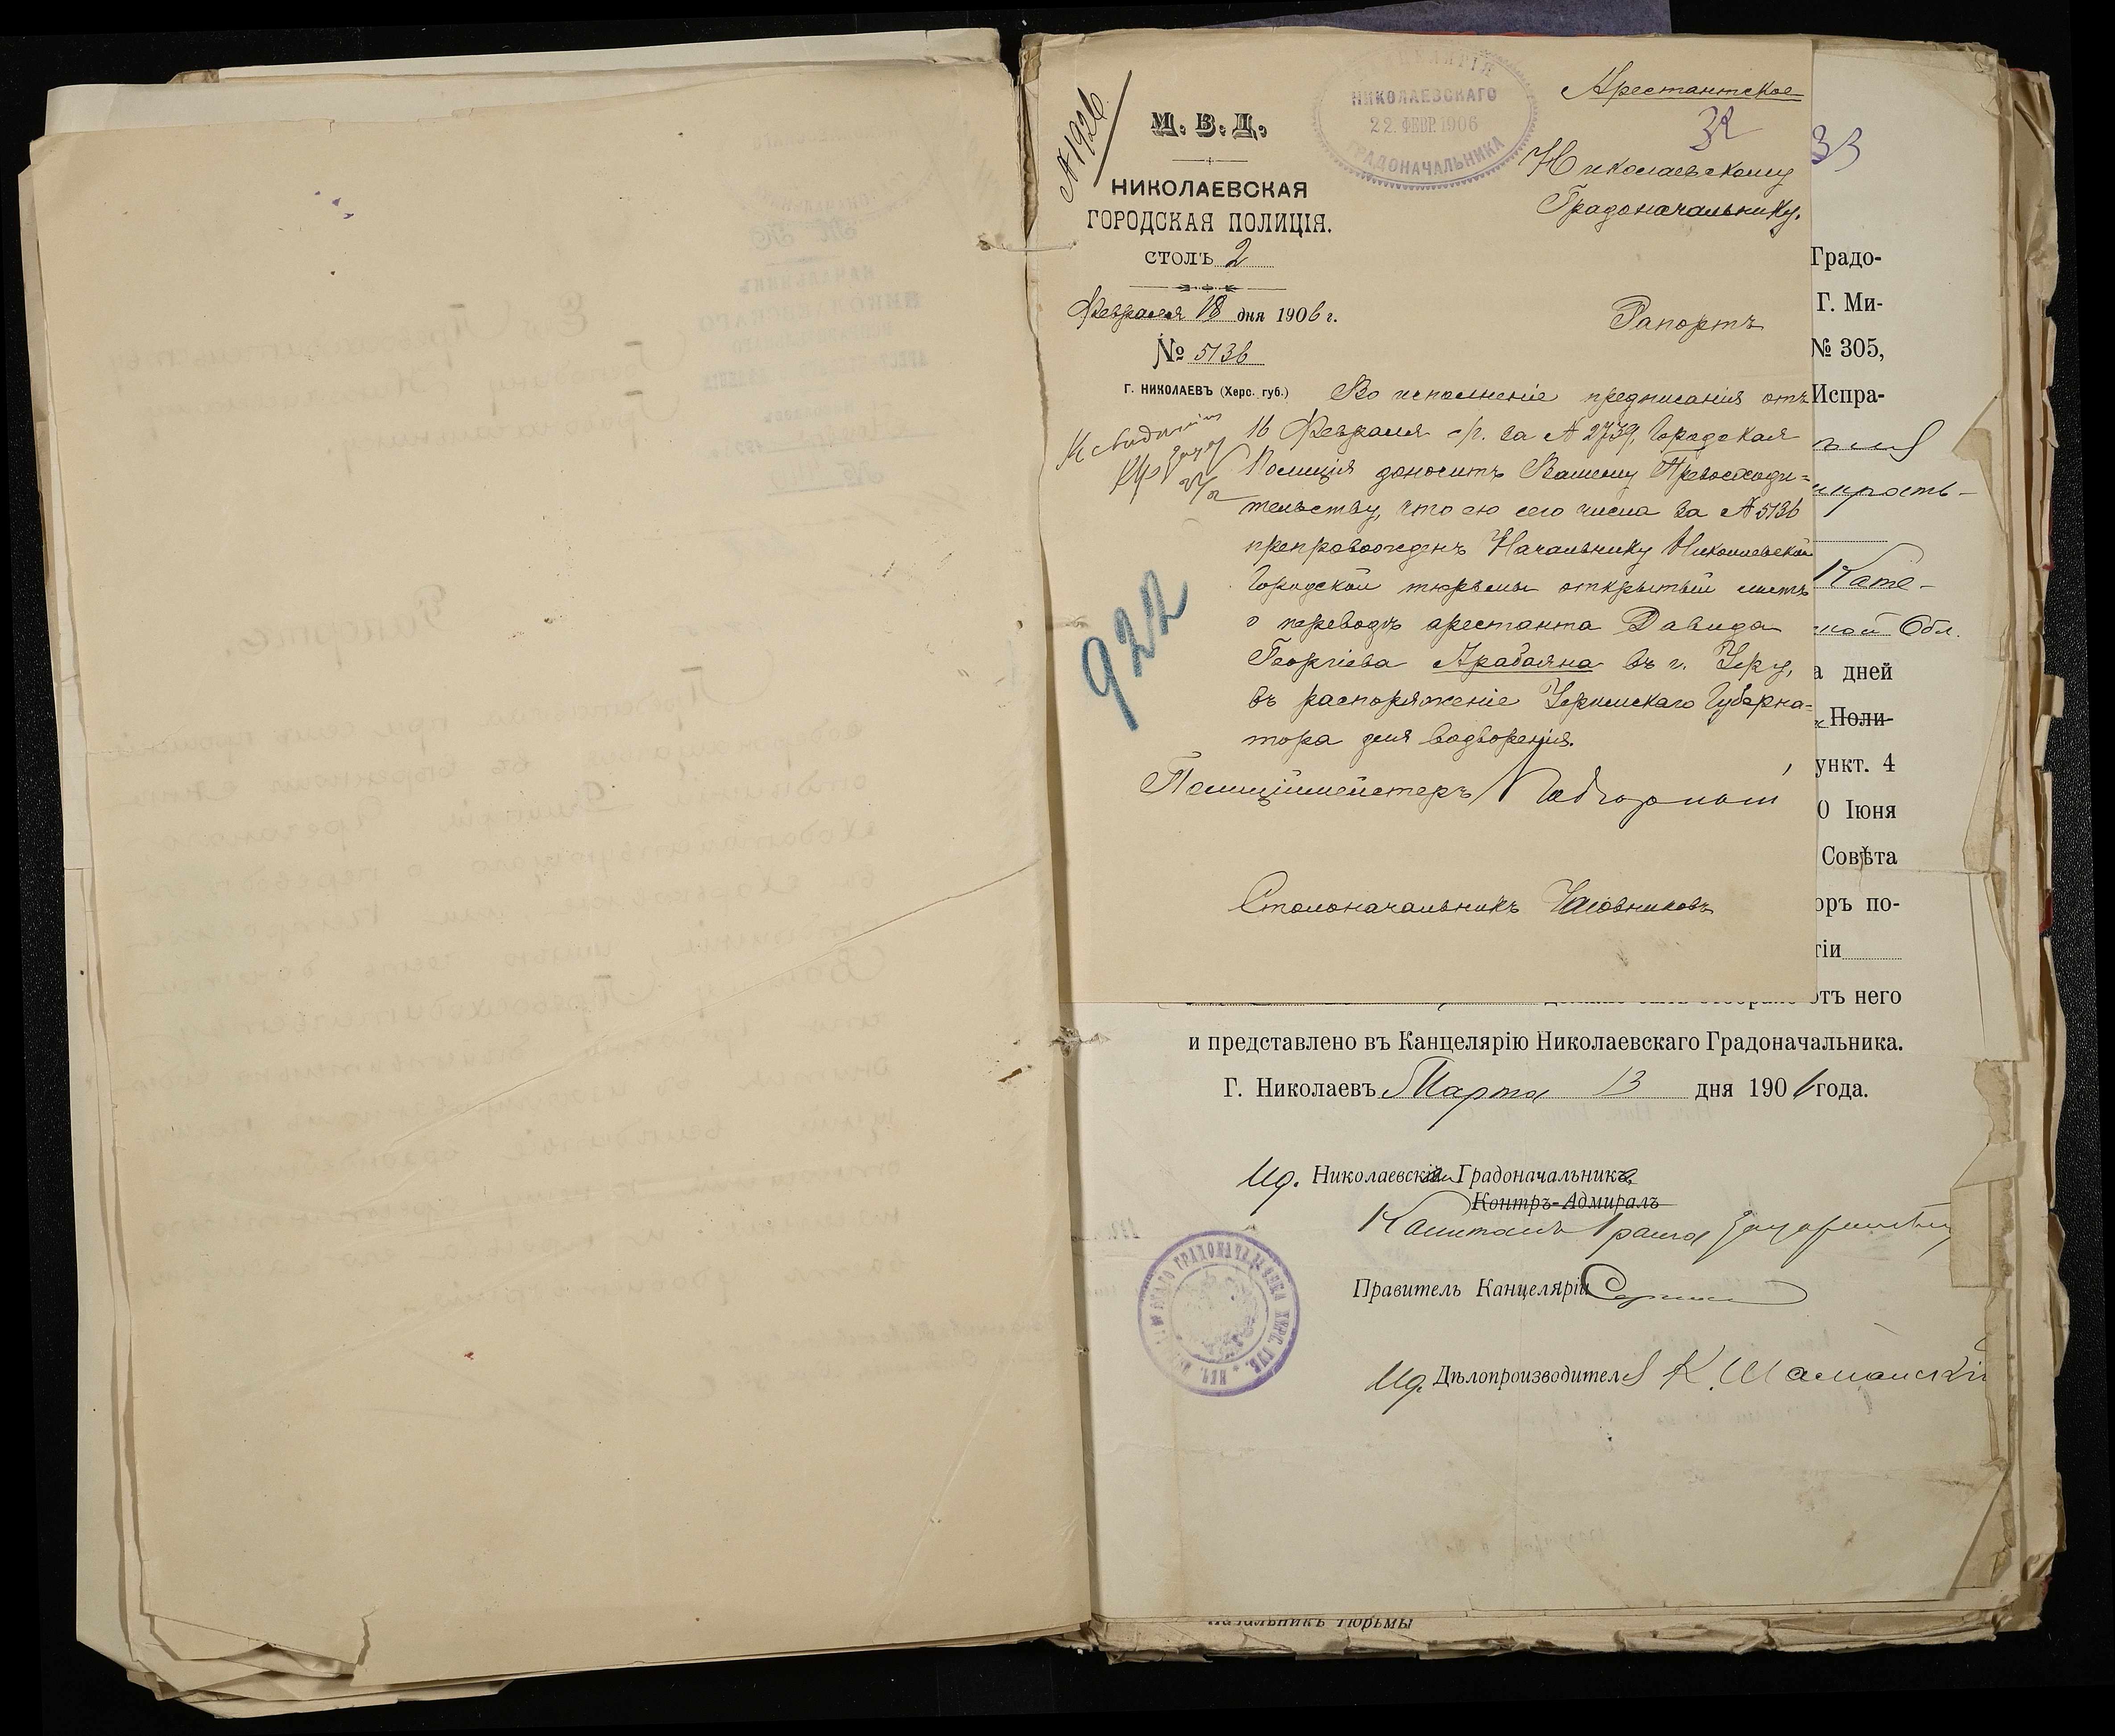 А 1926
М. В. Д.
НИКОЛАЕВСКАЯ
ГОРОДСКАЯ ПОЛИЦІЯ.
СТОЛЪ 2
Февраля 18 дня 1906 г.
№ 5136
Г. НИКОЛАЕВЪ (Херс. губ.)
НИКОЛАЕВСКАГО
22. ФЕВР. 1906
ГРАДОНАЧАЛЬНИКА
Арестантское
32
Николаевскому
Градоначальнику.
Рапортъ
Во исполненіе предписанія отъ
16 Февраля с/г. за А 2739, Городская
Полиція доноситъ Вашему Превосходи=
тельству, что ею сего числа за А 5136
препровожденъ Начальнику Николаевской
Городской тюрьмы открытый листъ
о переводѣ арестанта Давида
Георгіева Арабаяна въ г. Уфу,
въ распоряженіе Уфимскаго Губерна=
тора для водворенія.
Полиціймейстеръ
Столоначальникъ
К свѣдѣнію
922
33
Градо-
Г. Ми-
№ 305,
Испра-
Кате-
ной Обл.
а дней
Поли-
ункт. 4
0 Іюня
Совѣта
оръ по-
тіи
отъ него
и представлено въ Канцелярію Николаевскаго Градоначальника.
Г. Николаевъ Марта 13 дня 1906 года.
Ид. Николаевскаго Градоначальника,
Контръ-Адмиралъ
Капитанъ 1 ранга
Правитель Канцеляріи
Ид. Дѣлопроизводителя К. Шаманскій
Начальникъ Тюрьмы